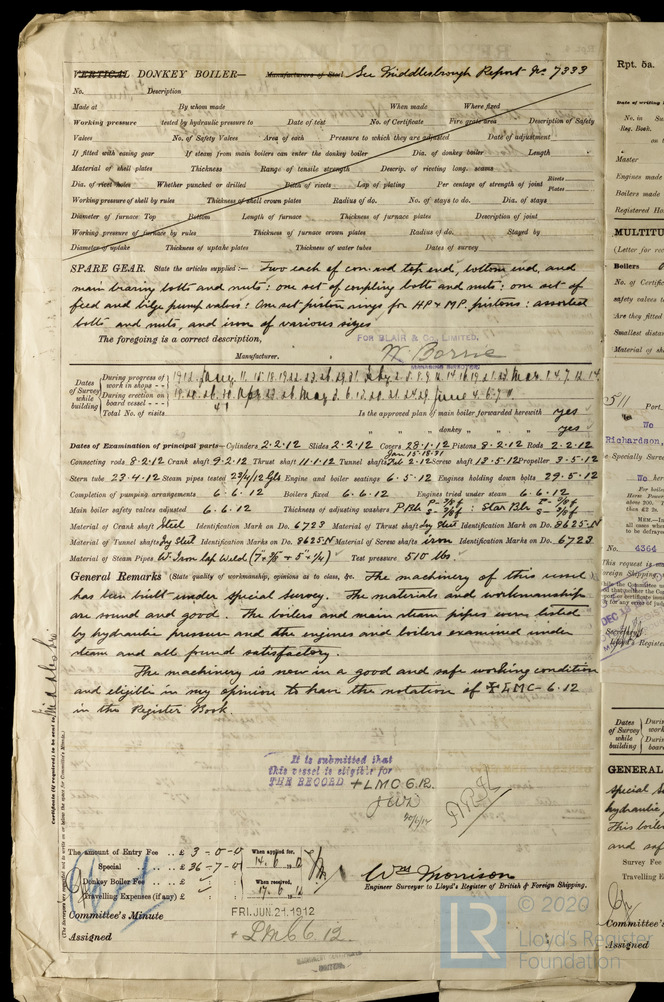 VERTICAL DONKEY BOILER— Manufacturers of Steel See Middlesbrough Report No. 7333
No. Description
Made at By whom made When made Where fixed
Working pressure tested by hydraulic pressure to Date of test No. of Certificate Fire grate area Description of Safety
Valves No. of Safety Valves Area of each Pressure to which they are adjusted Date of adjustment
If fitted with easing gear If steam from main boilers can enter the donkey boiler Dia. of donkey boiler Length
Material of shell plates Thickness Range of tensile strength Descrip. of riveting long. seams
Dia. of rivet holes Whether punched or drilled Pitch of rivets Lap of plating Per centage of strength of joint Rivets Plates
Working pressure of shell by rules Thickness of shell crown plates Radius of do. No. of stays to do. Dia. of stays
Diameter of furnace Top Bottom Length of furnace Thickness of furnace plates Description of joint
Working pressure of furnace by rules Thickness of furnace crown plates Radius of do. Stayed by
Diameter of uptake Thickness of uptake plates Thickness of water tubes Dates of survey
SPARE GEAR. State the articles supplied:— Two each of con-rod top end, bottom end, and
main bearing bolts and nuts: one set of coupling bolts and nuts: one set of
feed and bilge pump valves: One set piston rings for HP & MP pistons: assorted
bolts and nuts, and iron of various sizes
The foregoing is a correct description,
FOR BLAIR & Co., LIMITED,
Manufacturer.
MANAGING DIRECTOR
Dates of Survey while building
During progress of work in shops - -
During erection on board vessel - - -
Total No. of visits 41
Is the approved plan of main boiler forwarded herewith yes
" " " donkey " " " yes
Dates of Examination of principal parts—Cylinders 2.2.12 Slides 2.2.12 Covers 28.1.12 Pistons 8.2.12 Rods 2.2.12
Connecting rods 8.2.12 Crank shaft 9.2.12 Thrust shaft 11.1.12 Tunnel shafts Jan 15.18.31 Feb 2.12 Screw shaft 13.5.12 Propeller 3.5.12
Stern tube 23.4.12 Steam pipes tested Engine and boiler seatings 6.5.12 Engines holding down bolts 29.5.12
Completion of pumping arrangements 6.6.12 Boilers fixed 6.6.12 Engines tried under steam 6.6.12
Main boiler safety valves adjusted 6.6.12 Thickness of adjusting washers
Material of Crank shaft Steel Identification Mark on Do. 6723 Material of Thrust shaft Ing Steel Identification Mark on Do. 8625.N
Material of Tunnel shafts Ing Steel Identification Marks on Do. 8625.N Material of Screw shafts iron Identification Marks on Do. 6723
Material of Steam Pipes W. Iron lap weld Test pressure 510 lbs.
General Remarks (State quality of workmanship, opinions as to class, &c. The machinery of this vessel
has been built under special survey. The materials and workmanship
are sound and good. The boilers and main steam pipes were tested
by hydraulic pressure and the engines and boilers examined under
steam and all found satisfactory.
The machinery is now in a good and safe working condition
and eligible in my opinion to have the notation of + LMC-6.12
in the Register Book.
It is submitted that
this vessel is eligible for
THE RECORD + LMC 6.12.
The amount of Entry Fee .. £ 3-0-0 When applied for,
Special .. .. £ 36-7-0 14.6.12
Donkey Boiler Fee .. .. £ When received,
Travelling Expenses (if any) £
Wm Morrison
Engineer Surveyor to Lloyd's Register of British & Foreign Shipping.
Committee's Minute FRI. JUN. 21. 1912
Assigned + LMC 6.12.
Certificate (if required) to be sent to
(The Surveyors are requested not to write on or below the space for Committee's Minute.)
Rpt. 5a.
Date of writing
No. in
Reg. Book.
Master
Engines made
Boilers made
Registered
MULTITU
(Letter for
Boilers
No. of Certific
safety valves
Are they fitted
Smallest dista
Material of
Port
No
Richardson,
Specially Surve
No. 4364
Dates of Survey while building
GENERAL
special
hydraulic
This boiler
and
Survey Fee
Travelling
Committee's
Assigned
LR © 2020
Lloyd's Register
Foundation